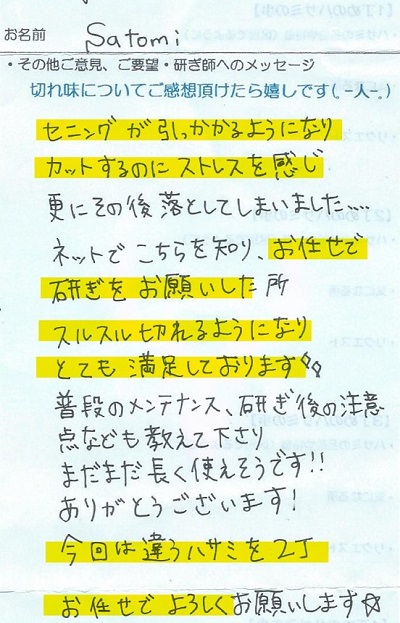 お名前 Satomi
・その他ご意見、ご要望・研ぎ師へのメッセージ
切れ味についてご感想頂けたら嬉しです(。-人-。)
セニングが引っかかるようになり
カットするのにストレスを感じ
更にその後落としてしまいました....
ネットでこちらを知り、お任せで
研ぎをお願いした所
スルスル切れるようになり
とても満足しております✨
普段のメンテナンス、研ぎ後の注意
点なども教えて下さり
まだまだ長く使えそうです!!
ありがとうございます!
今回は違うハサミを2丁
お任せでよろしくお願いします☆